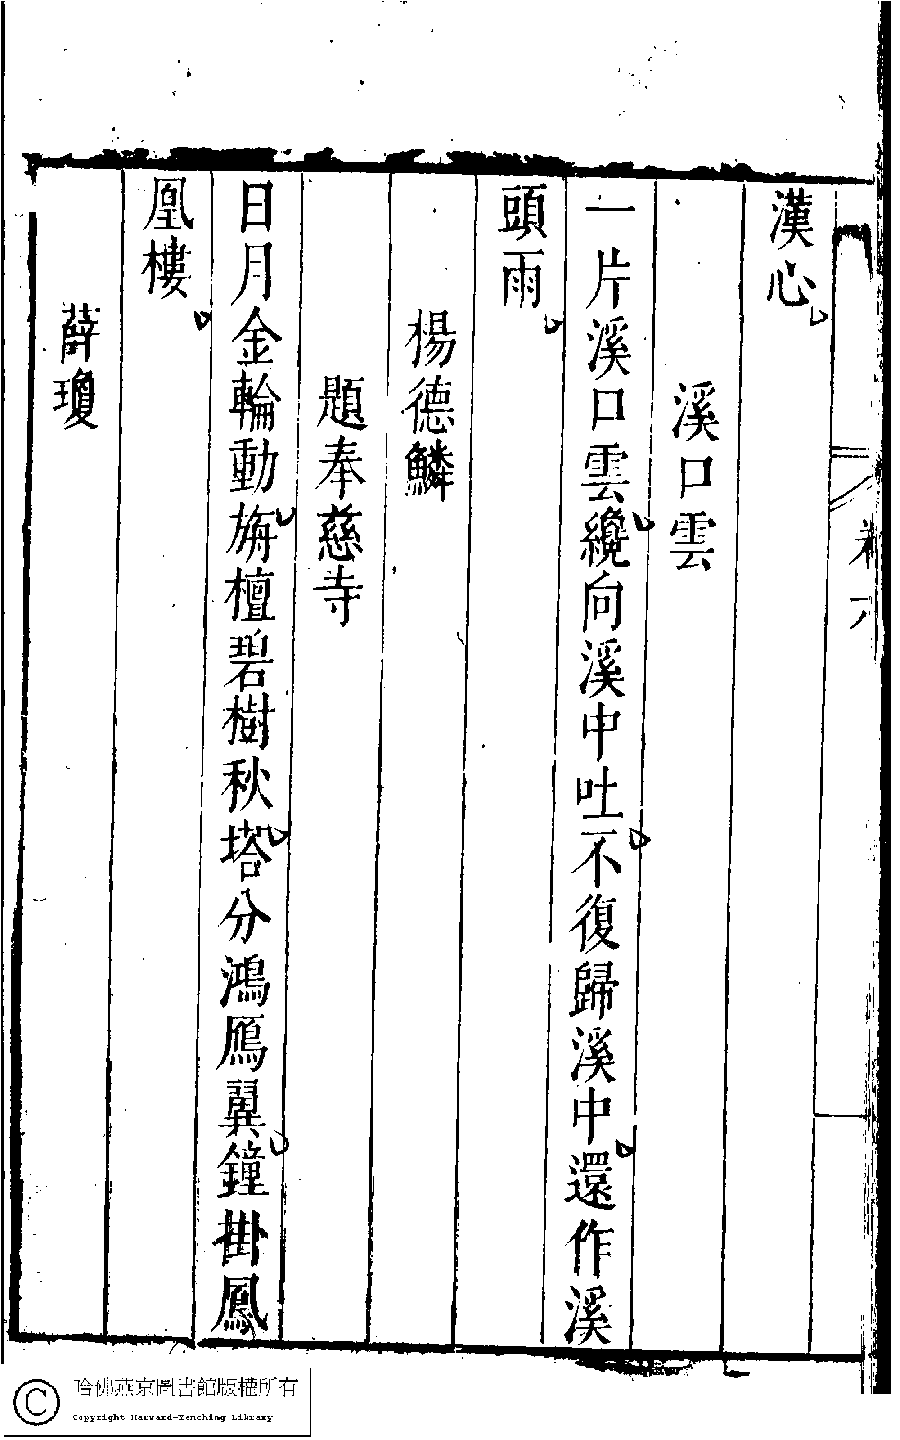 漢心
溪口雲
一片溪口雲纔向溪中吐不復歸溪中還作溪
頭雨
楊德鱗
題奉慈寺
日月金輪動旃檀碧樹秋塔分鴻鴈翼鐘掛鳳
凰樓
薛瓊
哈佛燕京圖書館版權所有
Copyright Harvard-Yenching Library